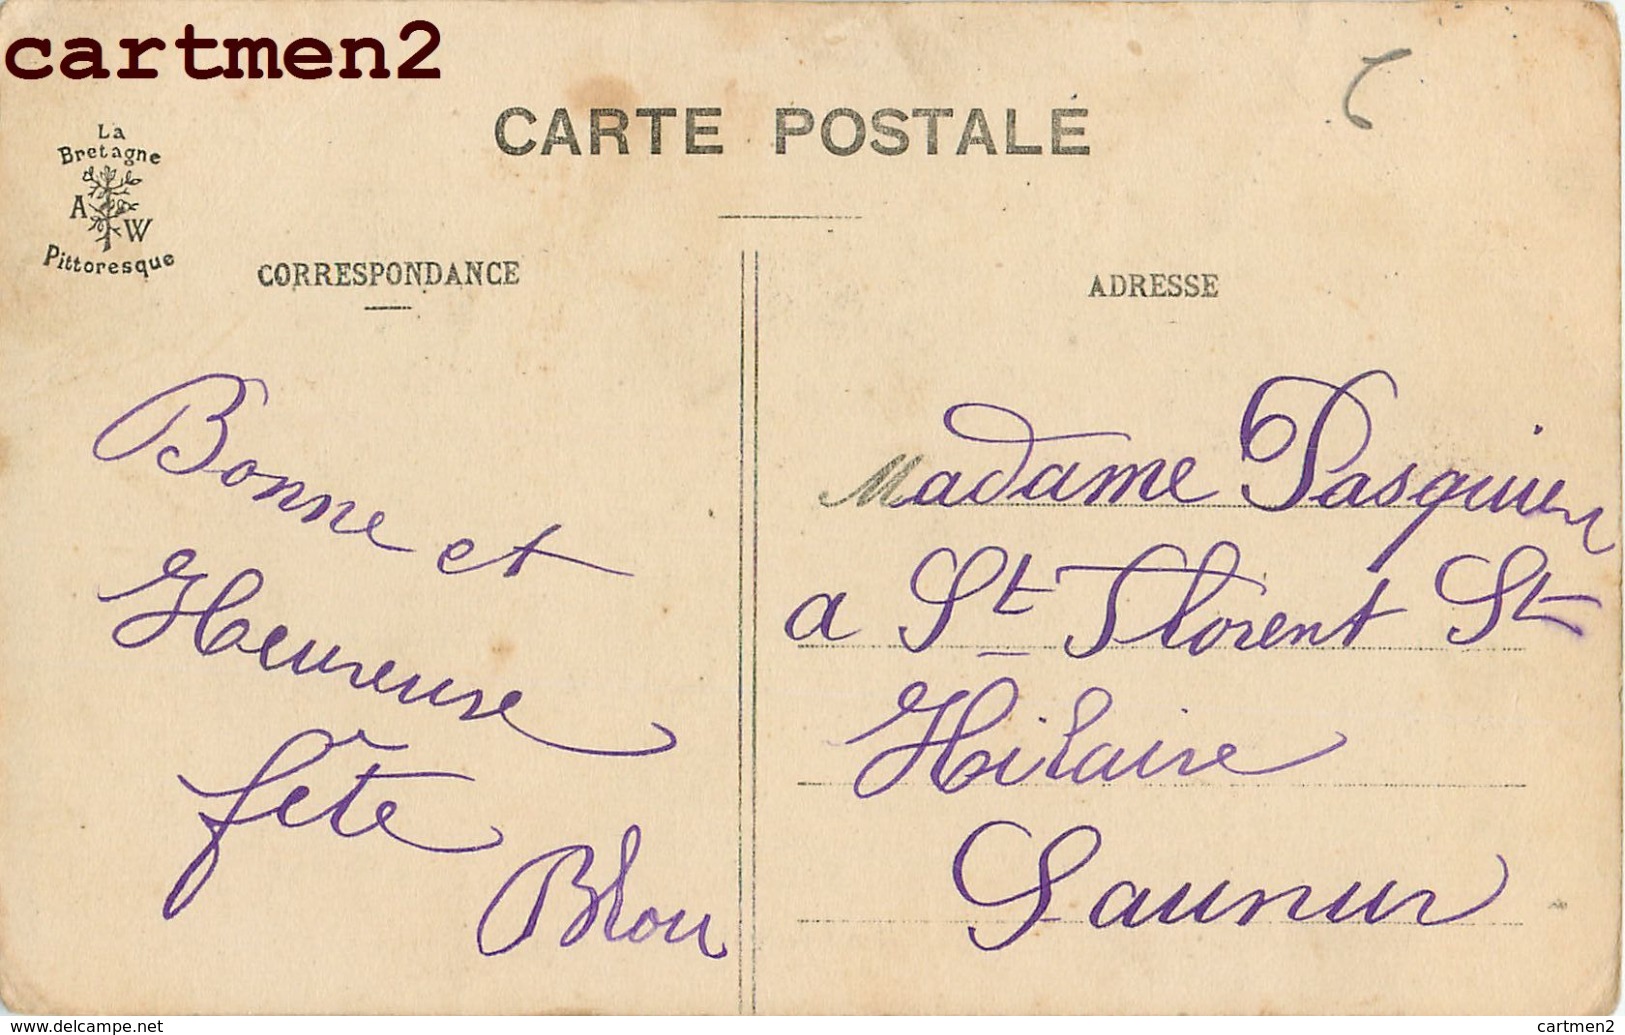 cartmen2
CARTE POSTALE
La
Bretagne
A W
Pittoresque
CORRESPONDANCE
ADRESSE
Bonne et
Heureuse
fête
Blou
Madame Pasquier
a St Florent St
Hilaire
Saumur
www.delcampe.net
cartmen2